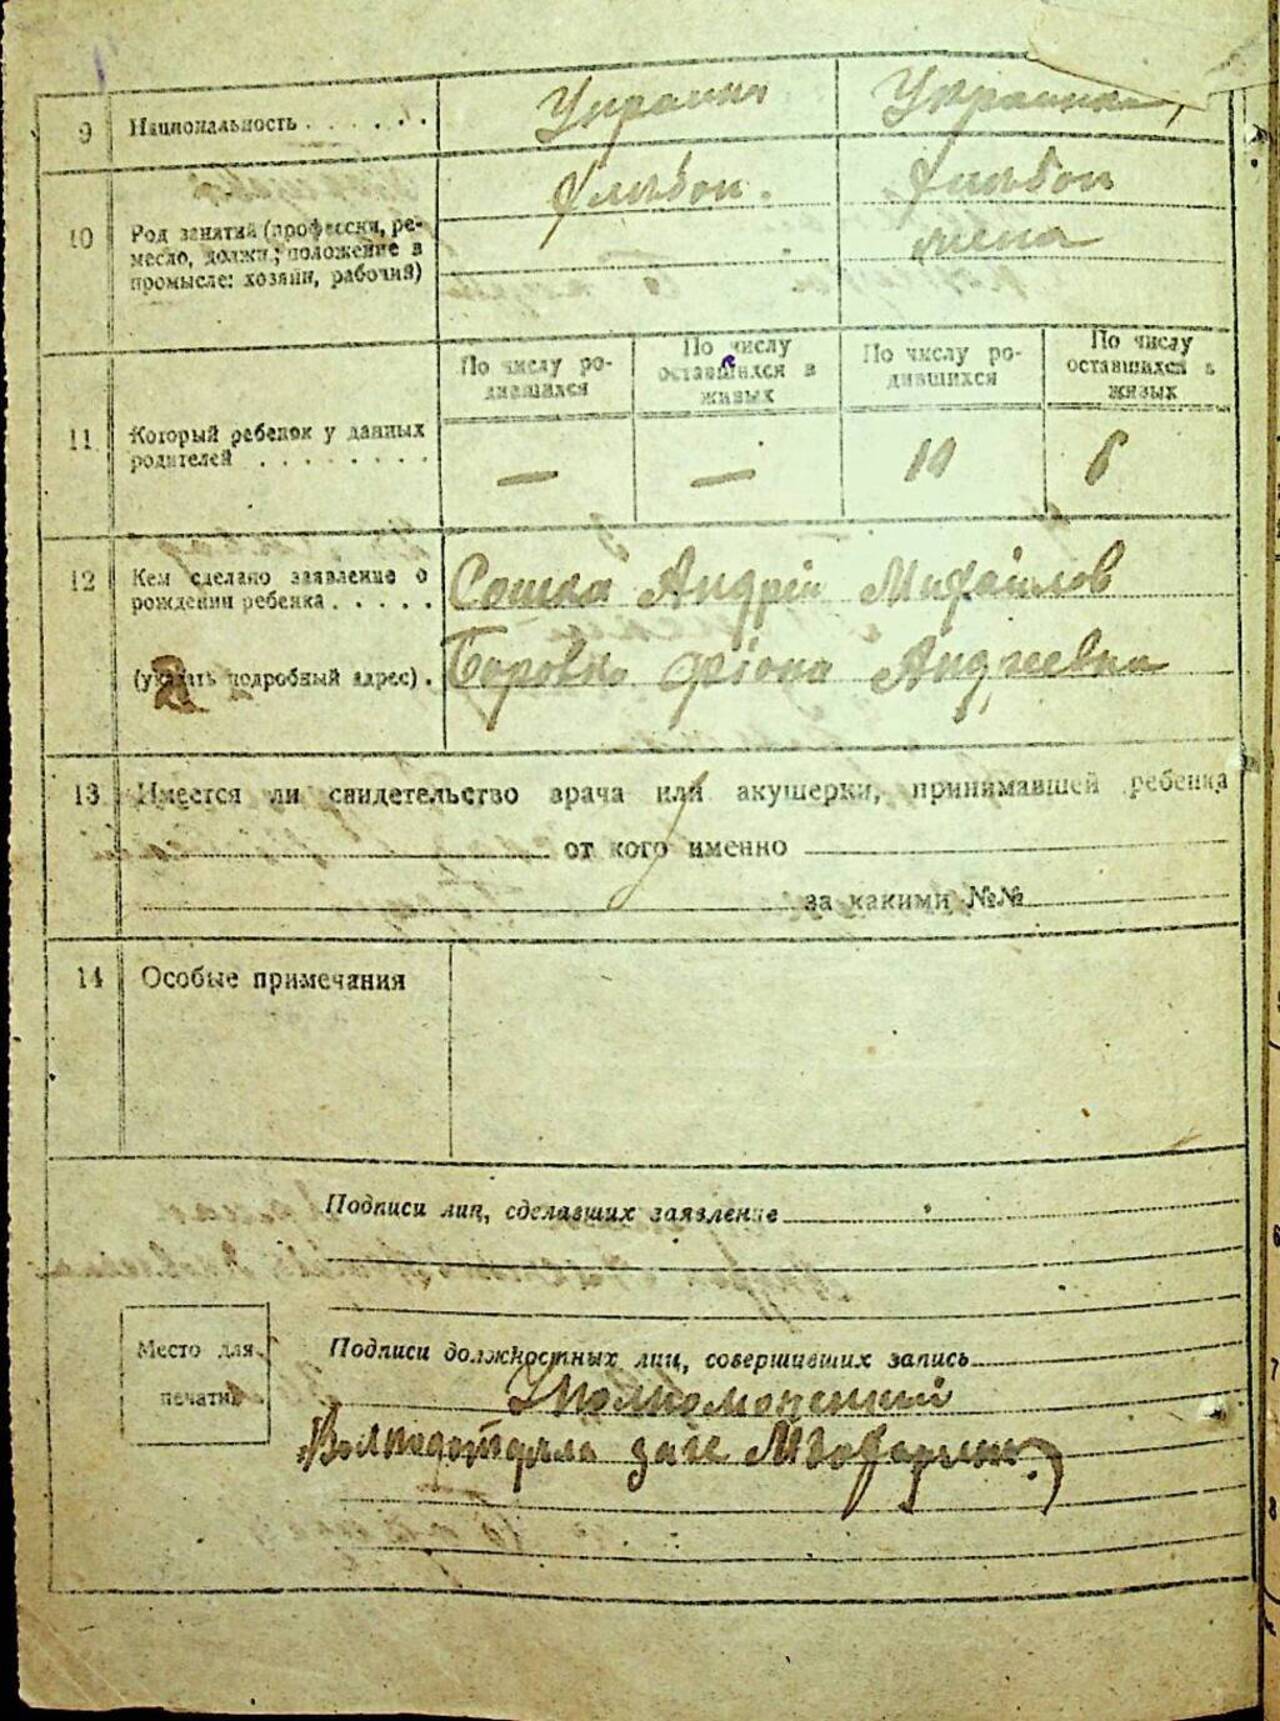 9 Национальность . . . . . . Украин Украинка
10 Род занятий (профессия, ре-
месло, должн.; положение в
промысле: хозяин, рабочий)
жена
По числу ро-
дившихся
По числу
оставшихся в
живых
По числу ро-
дившихся
По числу
оставшихся в
живых
11 Который ребенок у данных
родителей . . . . . . . . — — 10
12 Кем сделано заявление о
рождении ребенка . . . . . Сошка Андрій Михайлов
(указать подробный адрес) . Андреевна
13 Имеется ли свидетельство врача или акушерки, принимавшей ребенка
от кого именно
за какими №№
14 Особые примечания
Подписи лиц, сделавших заявление
Место для
печати
Подписи должностных лиц, совершивших запись
Уполномоченный